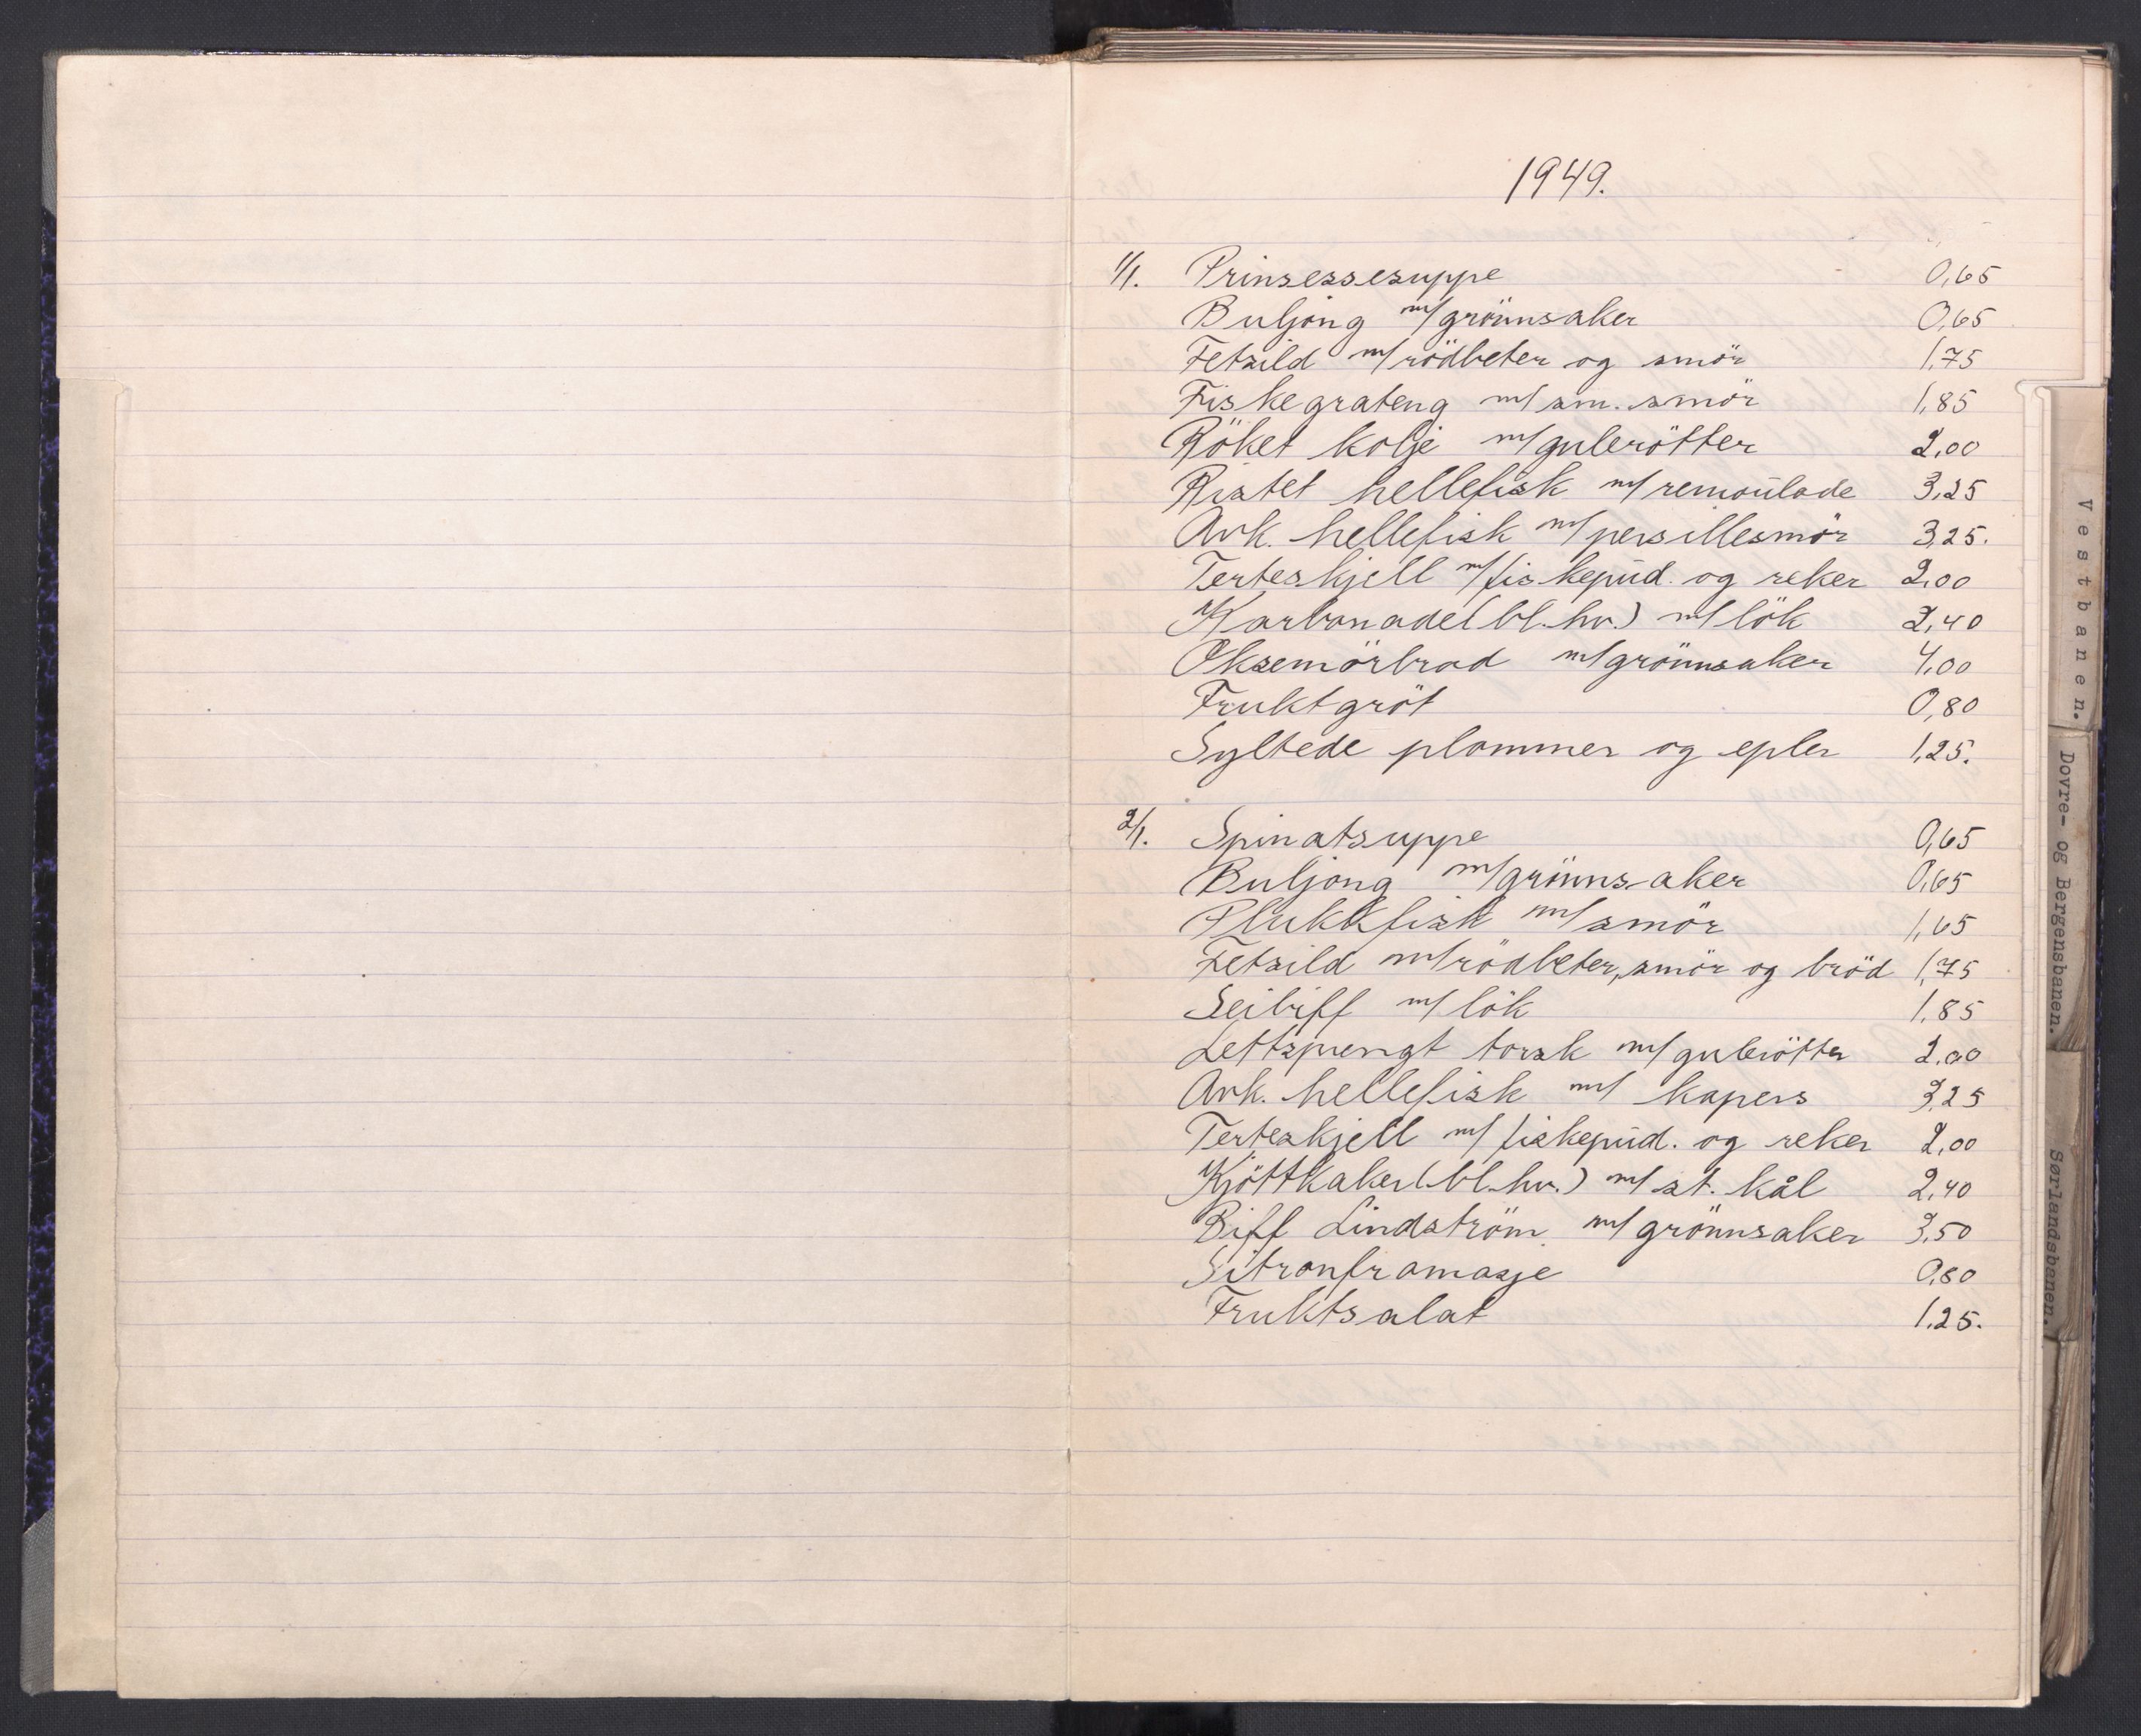 1949.
1/1. Prinsessesuppe 0,65
Buljong m/grönnsaker 0,65
Fetsild m/rödbeter og smör 1,75
Fiskegrateng m/sm. smör 1,85
Röket kolje m/gulerötter 2,00
Ristet hellefisk m/remoulade 3,25
Avk. hellefisk m/persillesmör 3,25.
Terteskjell m/fiskepud. og reker 2,00
Karbonade (bl.hv.) m/lök 2,40
Oksemörbrad m/grönnsaker 4,00
Fruktgröt 0,80
Syltede plommer og epler 1,25.
2/1. Spinatsuppe 0,65
Buljong m/grönnsaker 0,65
Plukkfisk m/smör 1,65
Fetsild m/rödbeter, smör og bröd 1,75
Seibiff m/lök 1,85
Lettsprengt torsk m/gulerötter 2,00
Avk. hellefisk m/ kapers 3,25
Terteskjell m/fiskepud. og reker 2,00
Kjöttkaker (bl.hv.) m/st. kål 2,40
Biff Lindström m/grönnsaker 3,50
Sitronfromasje 0,80
Fruktsalat 1,25.
Vestbanen.
Dovre- og Bergensbanen.
Sørlandsbanen.